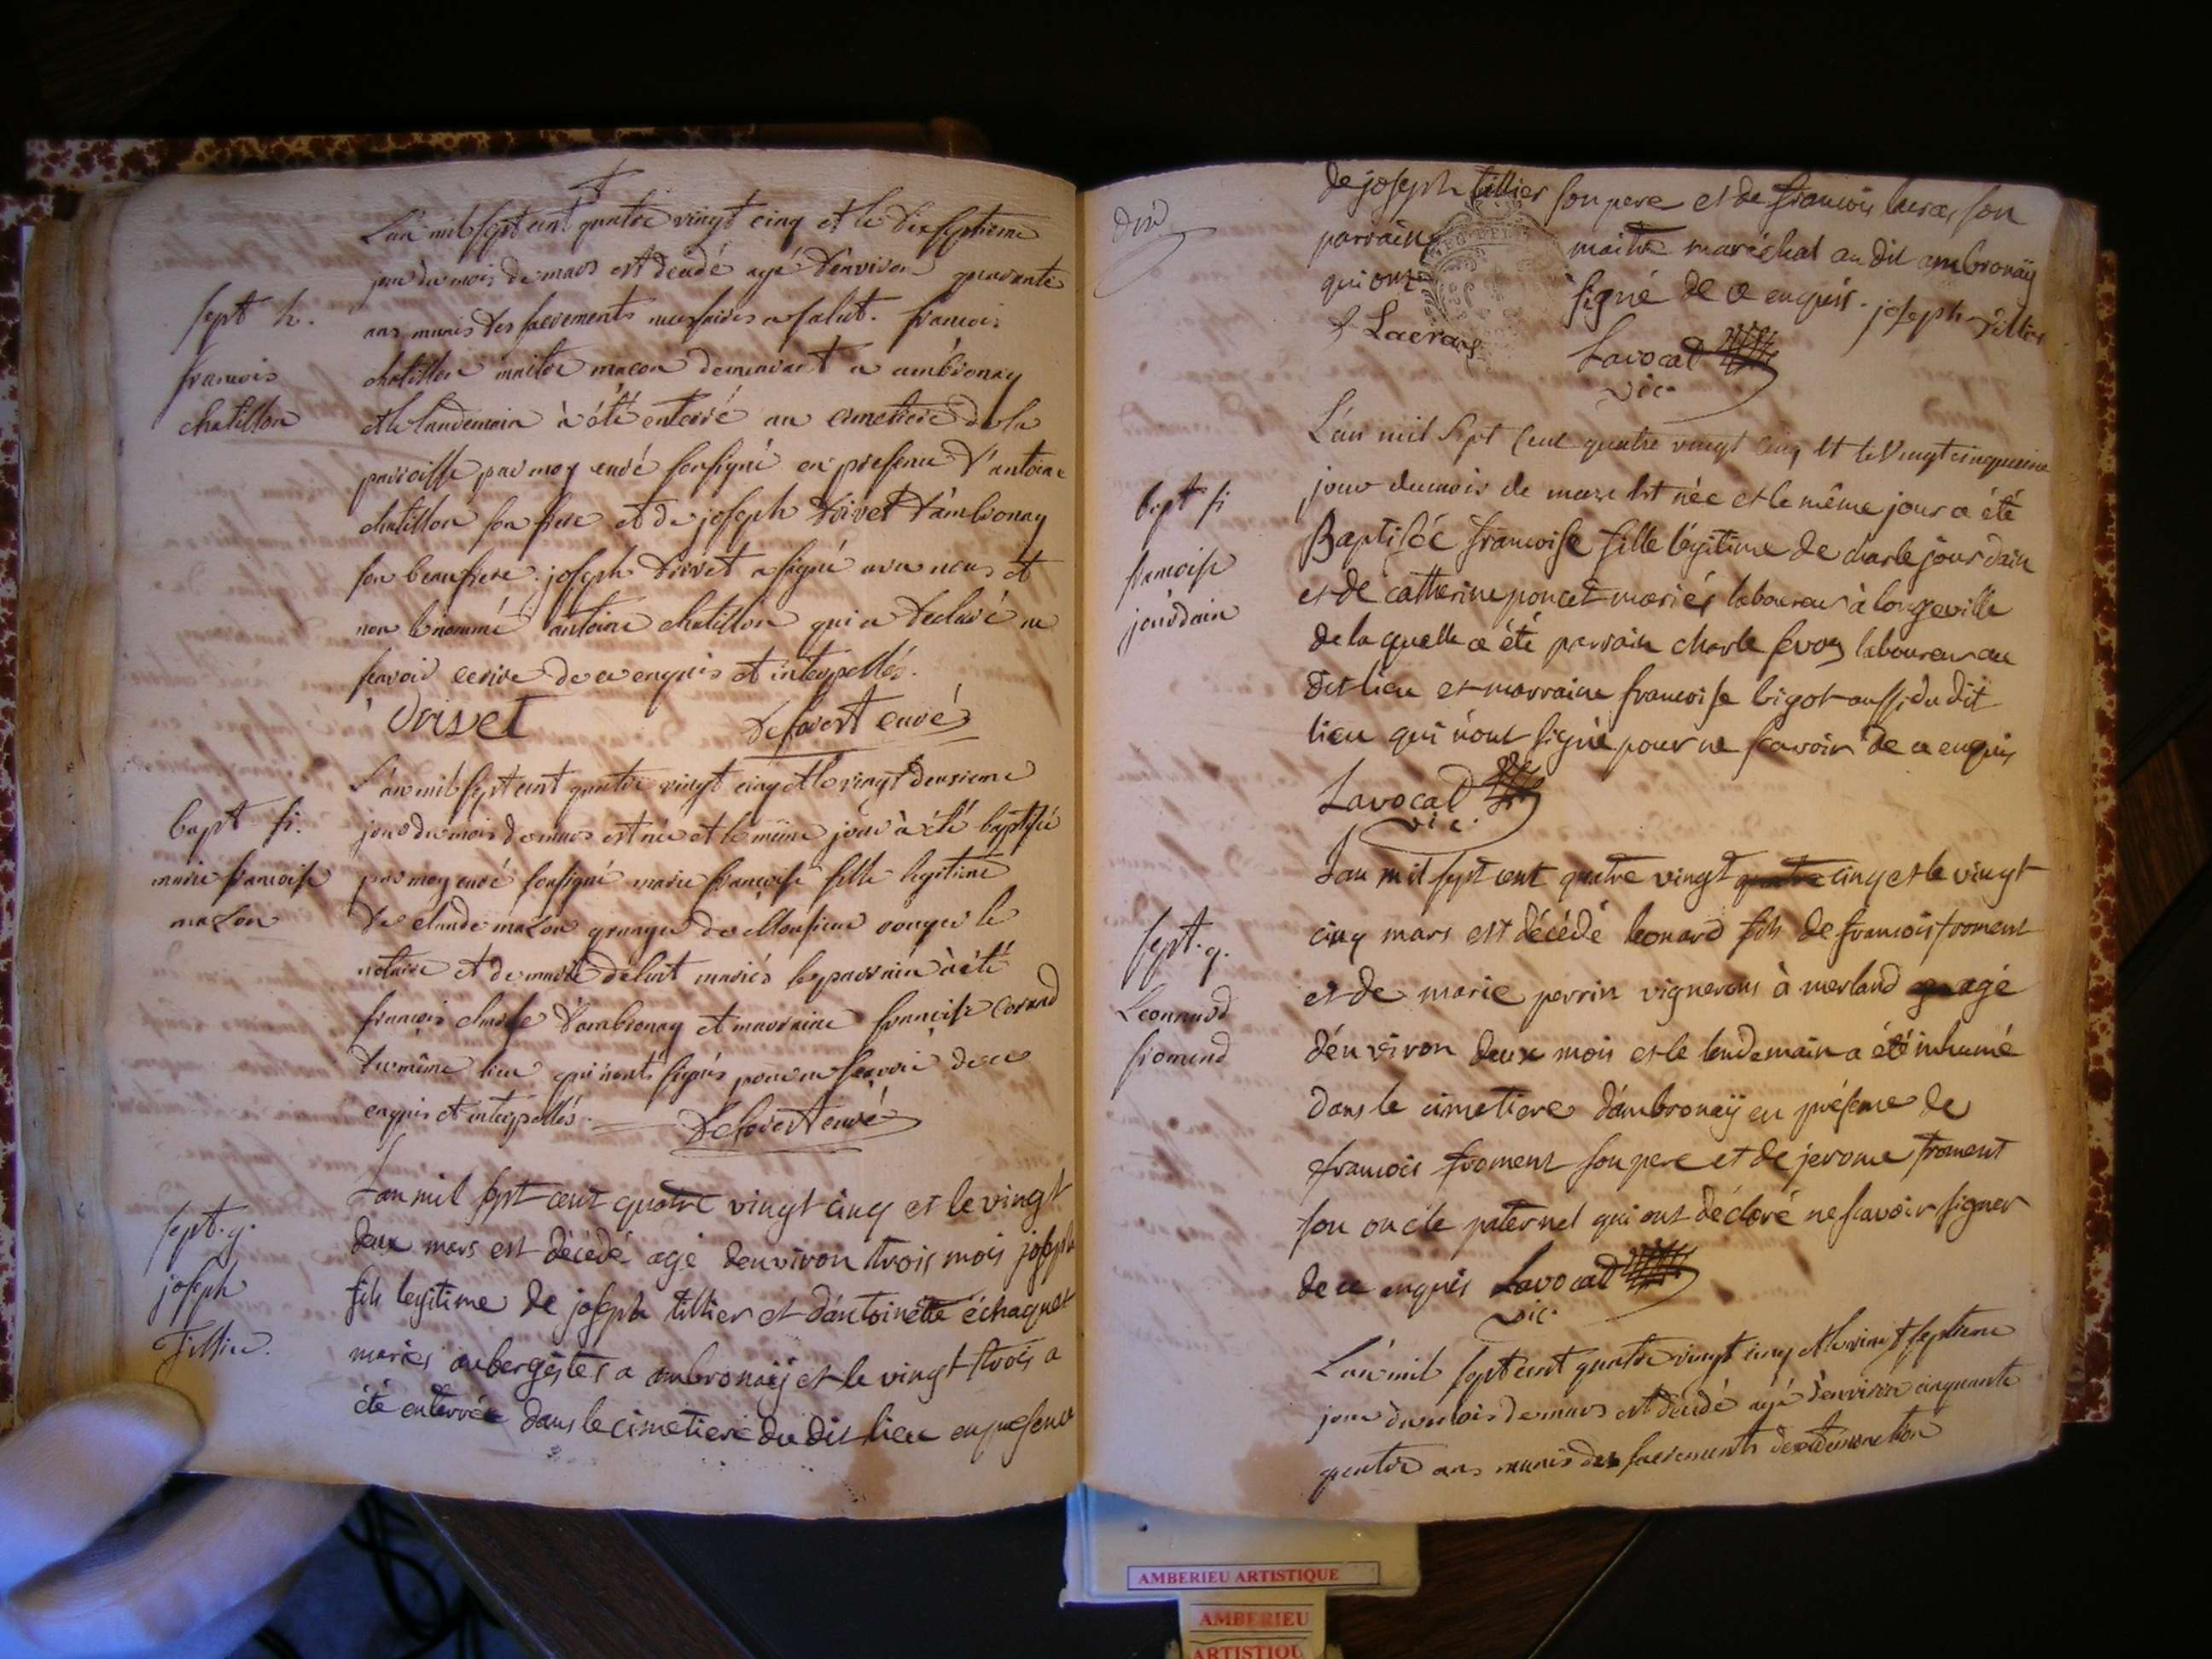 L'an mil sept cent quatre vingt cinq et le dix septieme
jour du mois de mars est decedé agé d'environ quarante
ans munis des sacrements necessaires a salut. francois
chatillon maitre macon demeurant a ambronay
et le landemain à été enterré au cimetiere de la
parroisse par moy curé soussigné en presence d'antoine
chatillon son frere et de joseph Drivet d'ambronay
son beaufrere. joseph Drivet a signé avec nous et
non le nommé antoine chatillon qui a declaré ne
scavoir ecrire de ce enquis et interpellés.
Drivet curé
sept h.
francois
chatillon
L'an mil sept cent quatre vingt cinq et le vingt deuxieme
jour du mois de mars est née et le même jour à été baptisée
par moy curé soussigné marie françoise fille legitime
de claude mazon granger de Monsieur rouger le
notaire et de marie mariés le parrain à été
francois d'ambronay et marraine francoise
du même lieu qui n'ont signés pour ne scavoir de ce
enquis et interpellés. curé
bapt fi.
marie francoise
mazon
Lan mil sept cent quatre vingt cinq et le vingt
deux mars est décédé agé denviron trois mois joseph
fils legitime de joseph tillier et d'antoinette échaquet
mariés aubergistes a ambronaÿ et le vingt trois a
été enterrée dans le cimetiere du dit lieu en presence
sept. g.
joseph
Tillier.
de joseph tillier son pere et de francois lacras son
parrain maitre maréchal au dit ambronaÿ
qui ont signé de ce enquis. joseph tillier
f Lacras Lavocat
vic.
L'an mil sept cent quatre vingt cinq et le vingt cinquieme
jour du mois de mars est née et le même jour a été
Baptisée francoise fille légitime de charle jourdain
et de catherine poncet mariés laboureur à longeville
de laquelle a été parrain charle laboureur au
dit lieu et marraine francoise bigot aussi du dit
lieu qui n'ont signé pour ne scavoir de ce enquis
Lavocat
vic.
bapt fi
francoise
jourdain
Lan mil sept cent quatre vingt quatre cinq et le vingt
cinq mars est décédé leonard fils de francois froment
et de marie perrin vignerons à merland agé
d'environ deux mois et le lendemain a été inhumé
dans le cimetiere d'ambronaÿ en présence de
francois froment son pere et de jerome froment
son oncle paternel qui ont déclaré ne scavoir signer
de ce enquis Lavocat
vic.
sept. g.
Leonnard
froment
L'an mil sept cent quatre vingt cinq et le vingt septieme
jour du mois de mars est decedé agé d'environ cinquante
quatre ans munis des sacrements
AMBERIEU ARTISTIQUE
AMBERIEU
ARTISTIQU